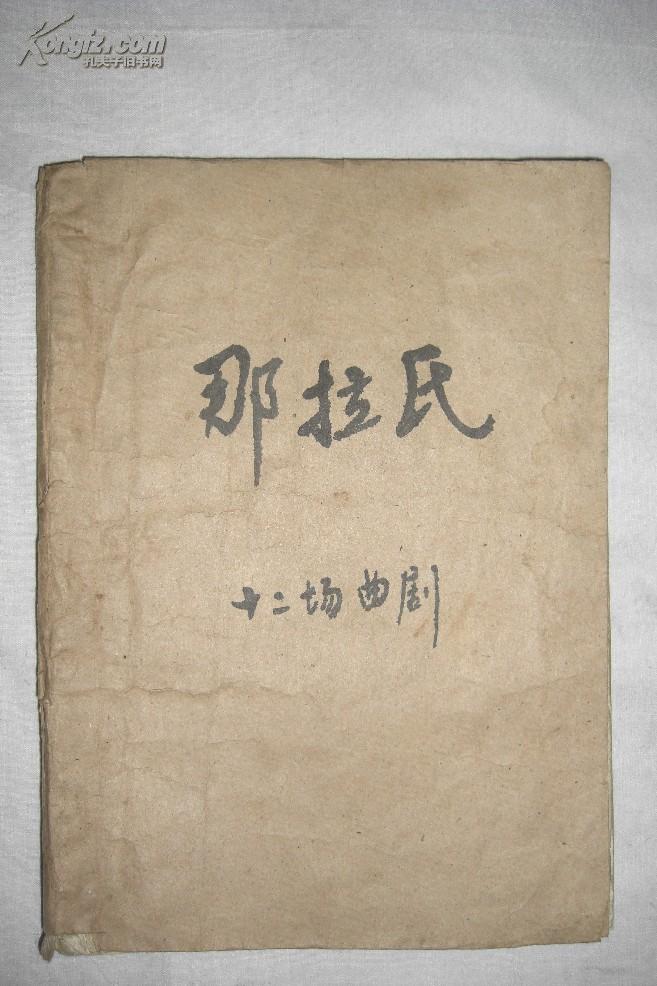 Kongfz.com
孔夫子旧书网
那拉氏
十二场曲剧